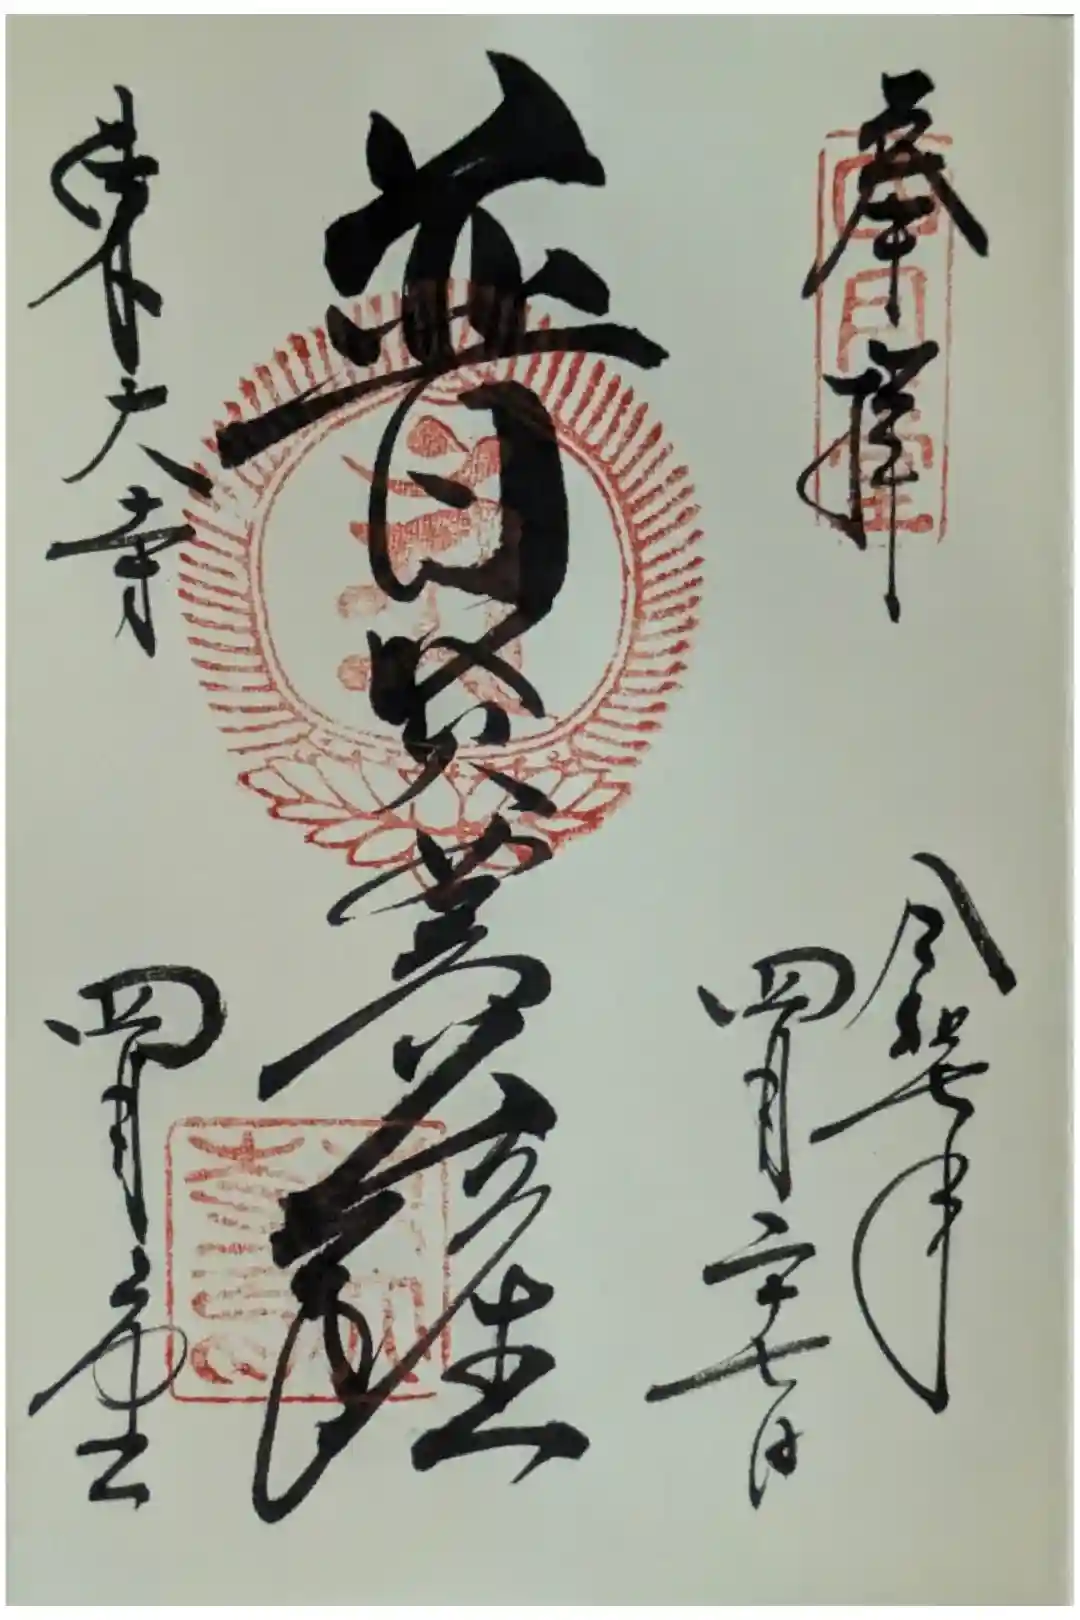 奉拝
令和七年
四月二十七日
普賢菩薩
東大寺
四月堂
四月堂